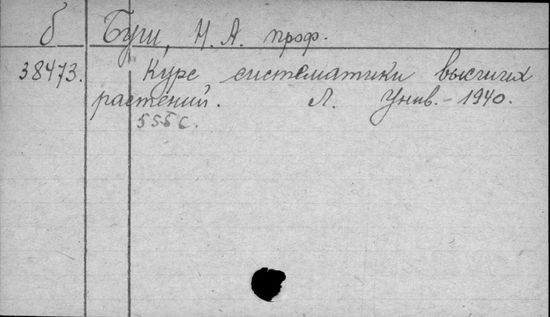 б Буш, Н. А. проф.
38473. Курс систематики высших
растений. Л. Унив. - 1940.
555 с.